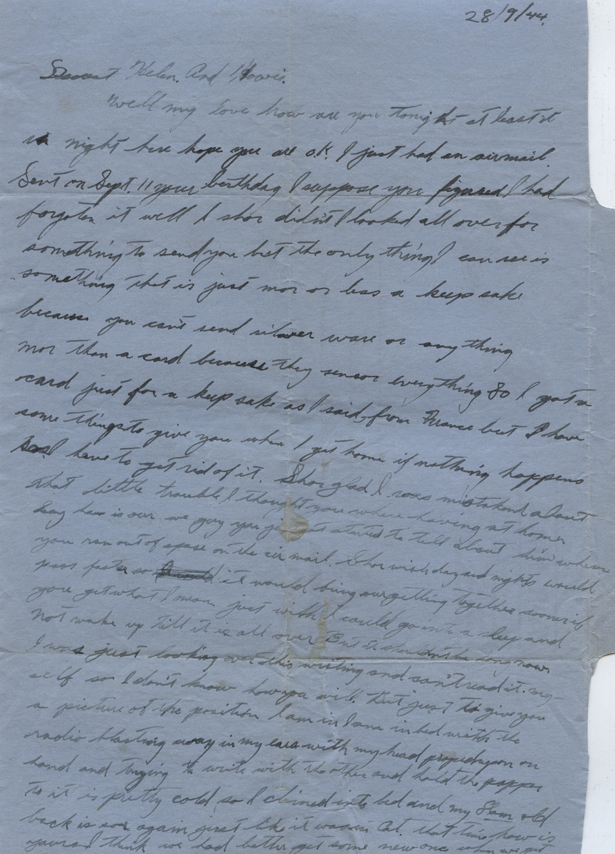 28/9/44.
Dearest Helen. And Howie.
Well my love how are you tonight at least it
is night here hope you are o.k. I just had an airmail.
Sent on Sept. 11 your birthday I suppose you figured I had
forgoten it well I shor didn't I looked all over for
something to send you but the only thing I can see is
something that is just mor or less a keep sake
because you can't send silver ware or any thing
mor than a card because they sensor everything So I got a
card just for a keep sake as I said, from France but I have
some things to give you when I get home if nothing happens
I have to get rid of it. Shor glad I was mistaken about
that little trouble I thought you where having at home
Say how is our you just started to tell about him when
you ran out of space on the air mail. Shor wish day and nights would
pass faster so it would bring our getting together sooner if
you get what I mean just wish I could go in a sleep and
not wake up till it is all over. But it shouldn't be long now
I was just looking over this writing and can't read it my
self so I don't know how you will. But just to give you
a picture of the position I am in I am in bed with the
radio blasting away in my ears with my head propped up on
hand and trying to write with the other and hold the pappe
to it is pretty cold so I climed into bed and my 8am old
back is sor again just like it was in Cal. that time how is
yours I think we had better get some new one when we get